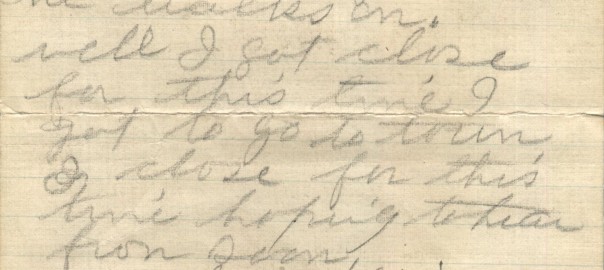 he walks on.
well I got close
for this time I
got to go to town
I close for this
time hoping to hear
from